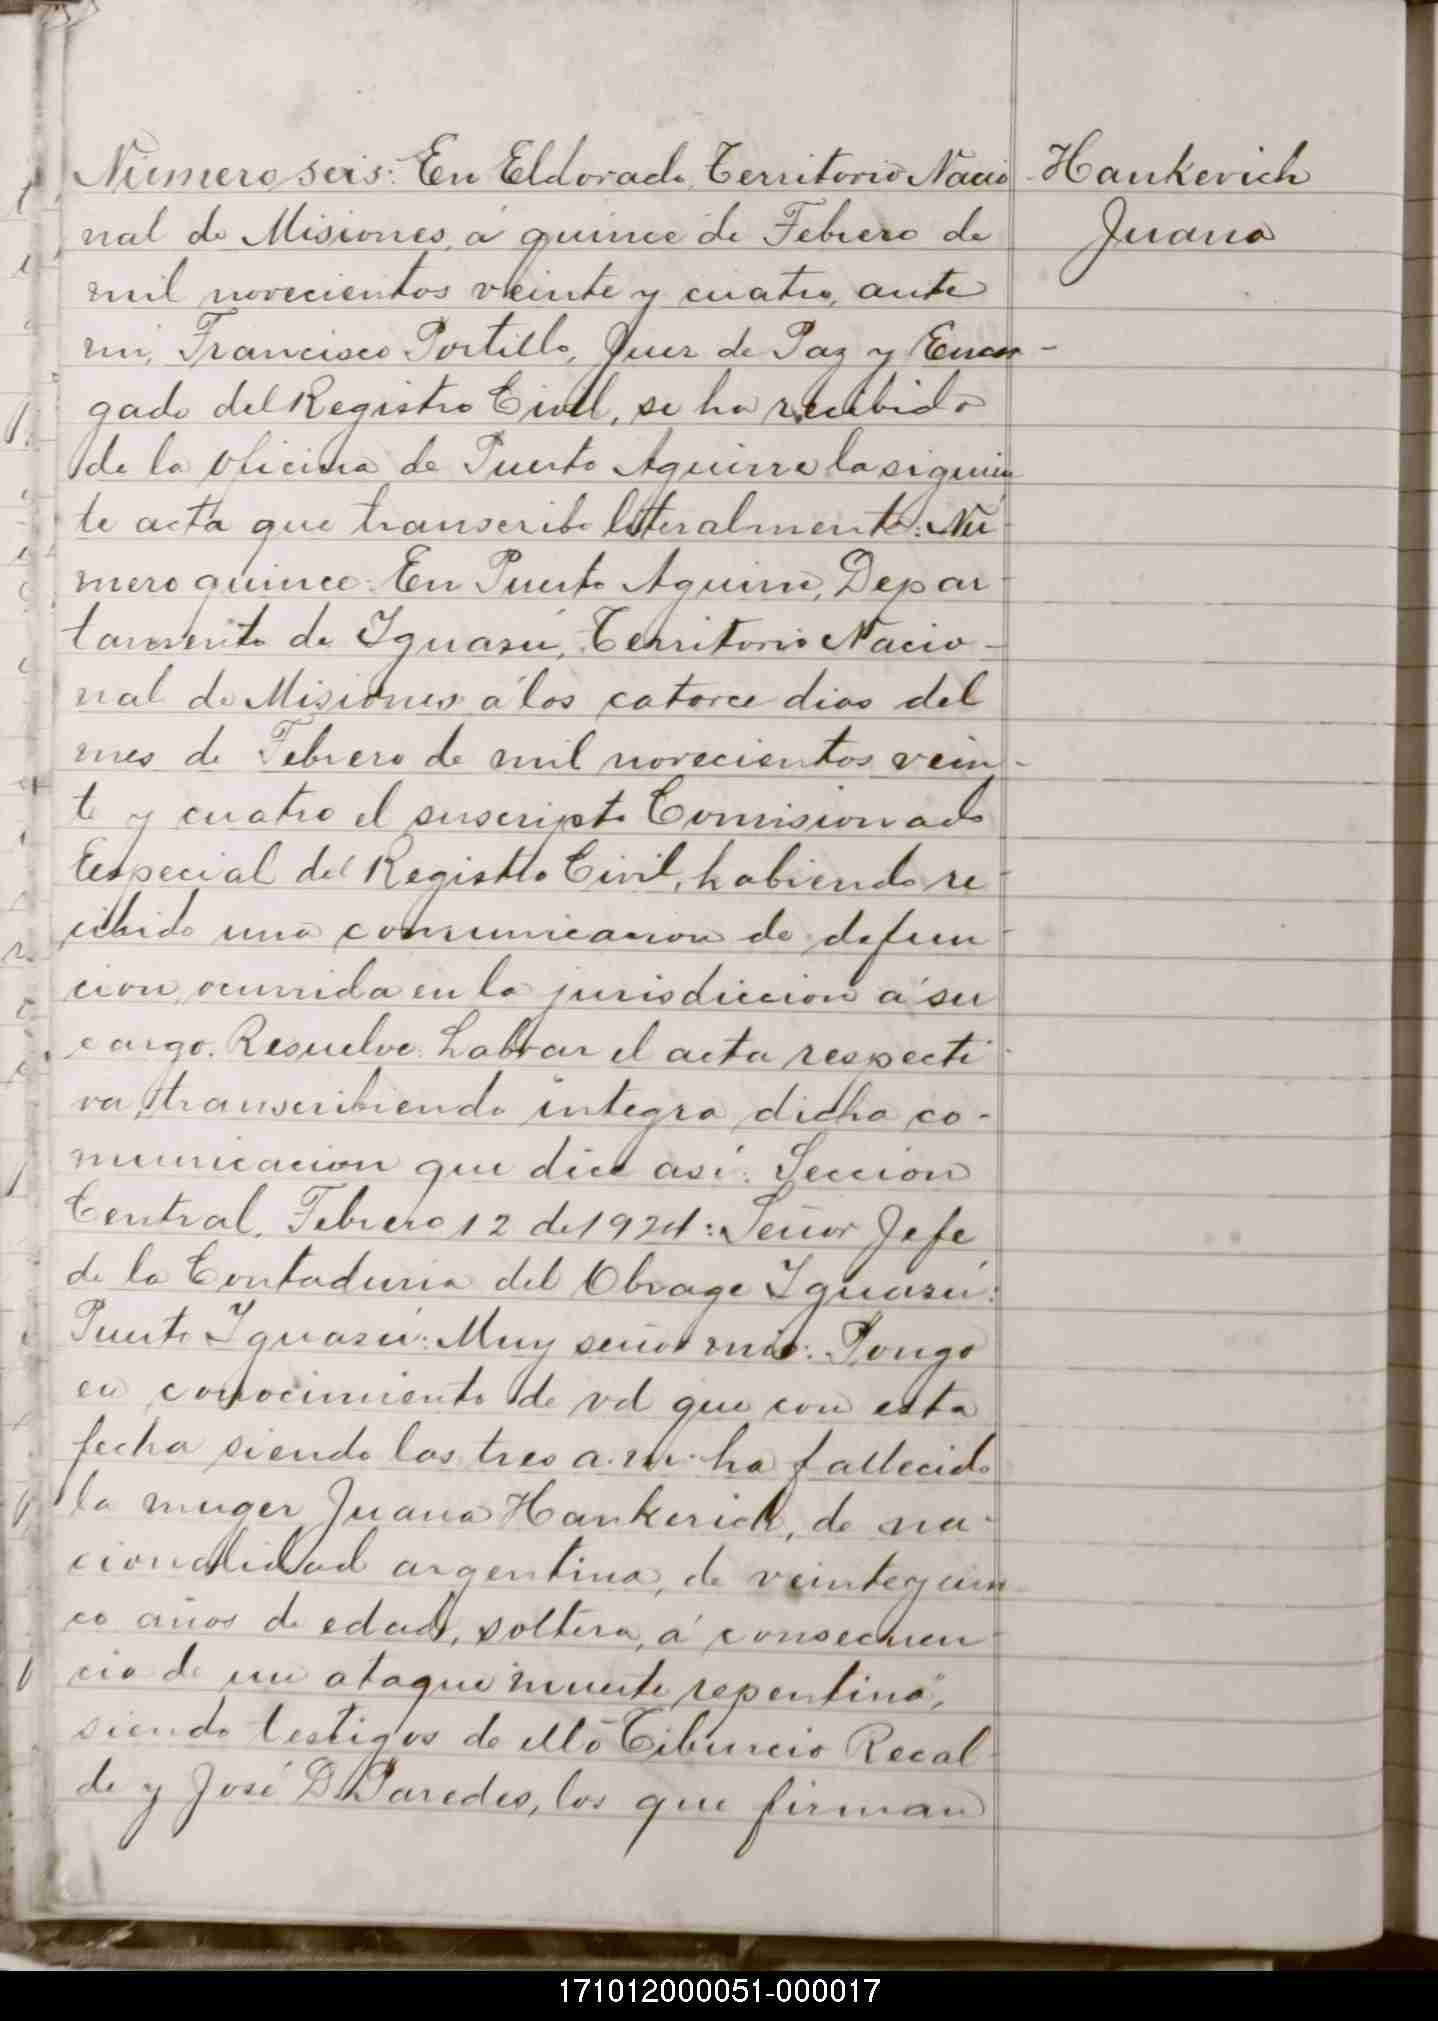 Número seis: En Eldorado, Territorio Nacio
nal de Misiones, á quince de Febrero de
mil novecientos veinte y cuatro, ante
mi, Francisco Portillo, Juez de Paz y Encar-
gado del Registro Civil, se ha recibido
de la oficina de Puerto Aguirre la siguien
te acta que transcribo literalmente: Nú
mero quince: En Puerto Aguirre, Depar-
tamento de Iguasú, Territorio Nacio-
nal de Misiones á los catorce dias del
mes de Febrero de mil novecientos vein-
te y cuatro el suscripto Comisionado
Especial del Registro Civil, habiendo re-
cibido una comunicacion de defun-
cion ocurrida en la jurisdiccion á su
cargo. Resuelve: Labrar el acta respecti-
va, transcribiendo integra dicha co-
municacion que dice así: Seccion
Central, Febrero 12 de 1924: Señor Jefe
de la Contaduria del Obrage Iguasú:
Puerto Iguasú: Muy señor mio: Pongo
en conocimiento de vd que con esta
fecha siendo las tres a.m. ha fallecido
la muger Juana Hankerich, de na-
cionalidad argentina, de veinte y cin-
co años de edad, soltera, á consecuen-
cia de un ataque "muerte repentina",
siendo testigos de ello Tiburcio Recal-
de y José D. Paredes, los que firman
Hankerich
Juana
171012000051-000017